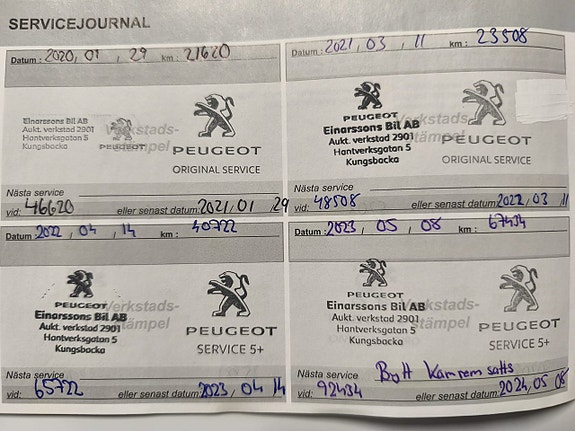 SERVICEJOURNAL
Datum : 2020, 01 , 29 km : 21620
Einarssons Bil AB
Aukt. verkstad 2901
Hantverksgatan 5
Kungsbacka
Verkstads-
stämpel
PEUGEOT
PEUGEOT
ORIGINAL SERVICE
Nästa service
vid: 46620 eller senast datum: 2021, 01 , 29
Datum : 2021, 03 , 11 km : 23508
PEUGEOT
Einarssons Bil AB
Aukt. verkstad 2901
Hantverksgatan 5
Kungsbacka
Verkstads-
stämpel
PEUGEOT
ORIGINAL SERVICE
Nästa service
vid: 48508 eller senast datum: 2022, 03 , 11
Datum : 2022 , 04 , 14 km : 40722
PEUGEOT
Einarssons Bil AB
Aukt. verkstad 2901
Hantverksgatan 5
Kungsbacka
Verkstads-
stämpel
PEUGEOT
SERVICE 5+
Nästa service
vid: 65722 eller senast datum: 2023 , 04 , 14
Datum : 2023 , 05 , 08 km : 67434
PEUGEOT
Einarssons Bil AB
Aukt. verkstad 2901
Hantverksgatan 5
Kungsbacka
Verkstads-
stämpel
PEUGEOT
SERVICE 5+
Nästa service Bytt Kamremsatts
vid: 92434 eller senast datum: 2024, 05 , 08